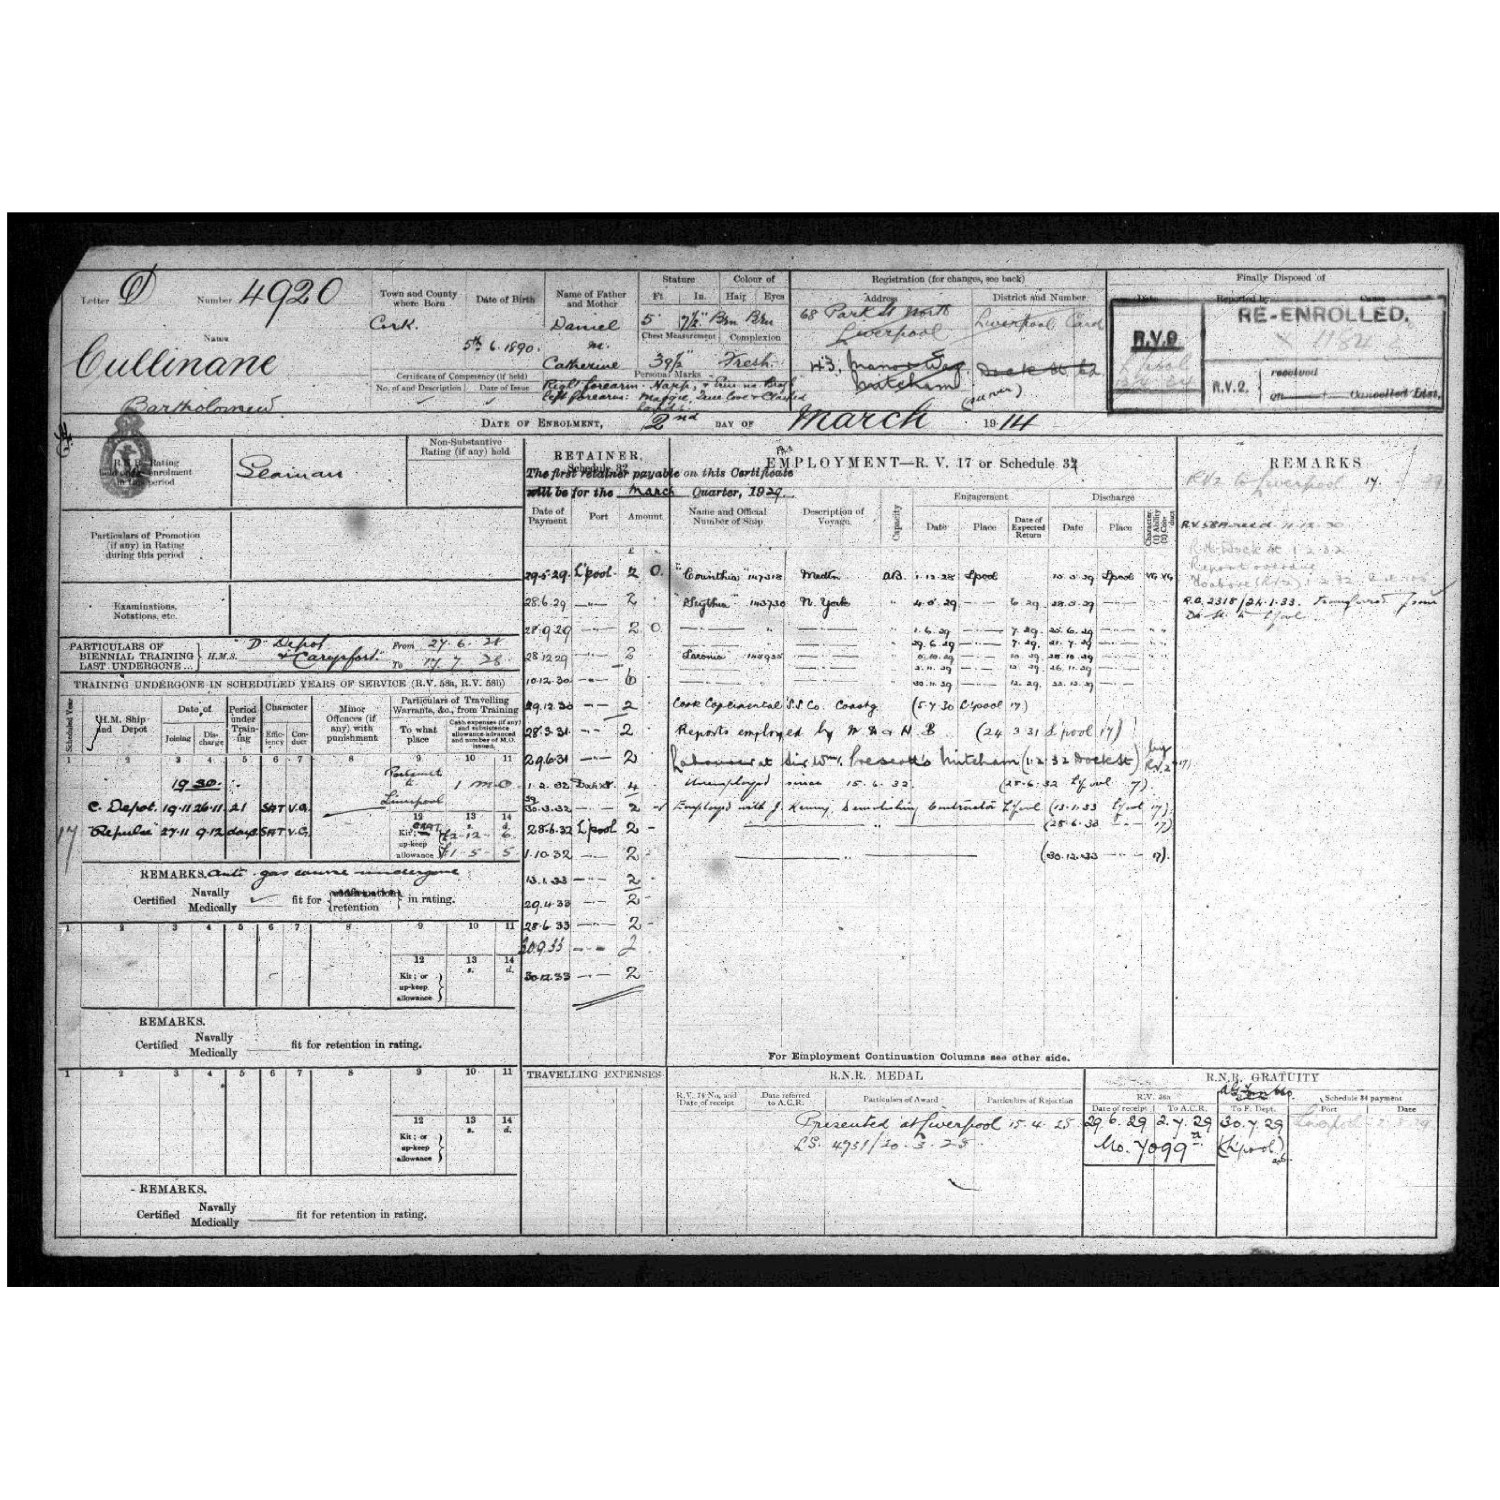 Letter D Number 4920
Name
Cullinane
Bartholomew
Town and County where Born
Cork.
Date of Birth
5th. 6. 1890.
Certificate of Competency (if held)
No. of and Description Date of Issue
Name of Father and Mother
Daniel
Catherine
Stature
Ft. In.
5' 7½"
Colour of
Hair Eyes
Brn Brn
Chest Measurement Complexion
39½" Fresh.
Personal Marks
Right forearm: Harp, + Erin
Left forearm: Maggie, True love + Clasped
hands.
Registration (for changes, see back)
Address District and Number
68 Park St North
Liverpool
Liverpool Card
43,
Mitcham
Dock St 62
(over)
Finally Disposed of
Date Reported by Cause
RE-ENROLLED.
R.V.9
R.V.2. received
on Cancelled List.
DATE OF ENROLMENT, 2nd DAY OF March 1914
R.N.R. Rating held on enrolment in this period
Seaman
Non-Substantive Rating (if any) held
Particulars of Promotion (if any) in Rating during this period
Examinations, Notations, etc.
PARTICULARS OF BIENNIAL TRAINING LAST UNDERGONE... H.M.S. "D" Depot
& "Carysfort"
From 27. 6. 28
To 17. 7. 28
TRAINING UNDERGONE IN SCHEDULED YEARS OF SERVICE (R.V. 58a, R.V. 58b)
Scheduled Year
H.M. Ship and Depot
Date of
Joining Discharge
Period under Training
Character
Efficiency Conduct
Minor Offences (if any) with punishment
Particulars of Travelling Warrants, &c., from Training
To what place
Cash expenses (if any) and subsistence allowance advanced and number of M.O. issued.
1 2 3 4 5 6 7 8 9 10 11
1930.
Portsmth to Liverpool
1 m.o
C. Depot. 19-11 26-11 21 SAT V.G.
17 "Repulse" 27-11 9-12 days SAT V.G.
12 13 14
s. d.
Kit; or up-keep allowance
£2-12-6
£1-5-5
REMARKS. Anti-gas course undergone
Certified Navally Medically fit for retention in rating.
1 2 3 4 5 6 7 8 9 10 11
12 13 14
s. d.
Kit; or up-keep allowance
REMARKS.
Certified Navally Medically fit for retention in rating.
1 2 3 4 5 6 7 8 9 10 11
12 13 14
s. d.
Kit; or up-keep allowance
REMARKS.
Certified Navally Medically fit for retention in rating.
RETAINER.
The first retainer payable on this Certificate
will be for the March Quarter, 1929.
Date of Payment Port Amount
£
29.5.29. L'pool. 2 0.
28.6.29 —"— 2
28.9.29 —"— 2 0.
28.12.29 —"— 2
10.12.30 —"— 6
29.12.30 —"— 2
28.3.31 —"— 2
29.6.31 —"— 2
1.2.32 Dock St 4
30.3.32 —"— 2
28.6.32 L'pool 2
1.10.32 —"— 2
13.1.33 —"— 2
29.4.33 —"— 2
28.6.33 —"— 2
30.9.33 —"— 2
30.12.33 —"— 2
TRAVELLING EXPENSES
EMPLOYMENT—R. V. 17 or Schedule 32
Name and Official Number of Ship
Description of Voyage.
Capacity
Engagement
Date Place Date of Expected Return
Discharge
Date Place
Character (1) Ability (2) Conduct
"Corinthia" 147318 Medtn AB. 1.12.28 Lpool Lpool VG VG
"Scythia" 143730 N. York " 6.29
1.6.29 7.29
29.6.29 7.29
Laconia
30.11.29 12.29
Cork Coplimental S.S. Co. Coastg. (5.7.30 L'pool 17)
Reports employed by M. D. & H. B (24 3 31 L'pool 17)
Labourer at Sir Wm. Prescott's Mitcham (1.2.32 Dock St) by R.V.2
Unemployed since 15.6.32. (28.6.32 L'pool 17)
Employed with J. Kenny, Demolishing Contractor L'pool (13.1.33 L'pool 17)
(28.6.33 —"— 17)
(30.12.33 —"— 17).
For Employment Continuation Columns see other side.
REMARKS
RV2 to Liverpool
R.V.58A recd. 11.12.30
Dock St 1.2.32
Report overdue
R.O. 2318/24.1.33. Transferred from
Dk. St. to L'pool.
R.N.R. MEDAL
R.V. 74 No. and Date of receipt
Date referred to A.C.R.
Particulars of Award
Particulars of Rejection
Presented at Liverpool 15.4.25
L.S. 4951/20.3.25
R.N.R. GRATUITY
R.V. 38a
Date of receipt To A.C.R. To F. Dept.
Schedule 34 payment
Port Date
29.6.29 2.7.29 30.7.29
Mo. 7099 (L'pool)